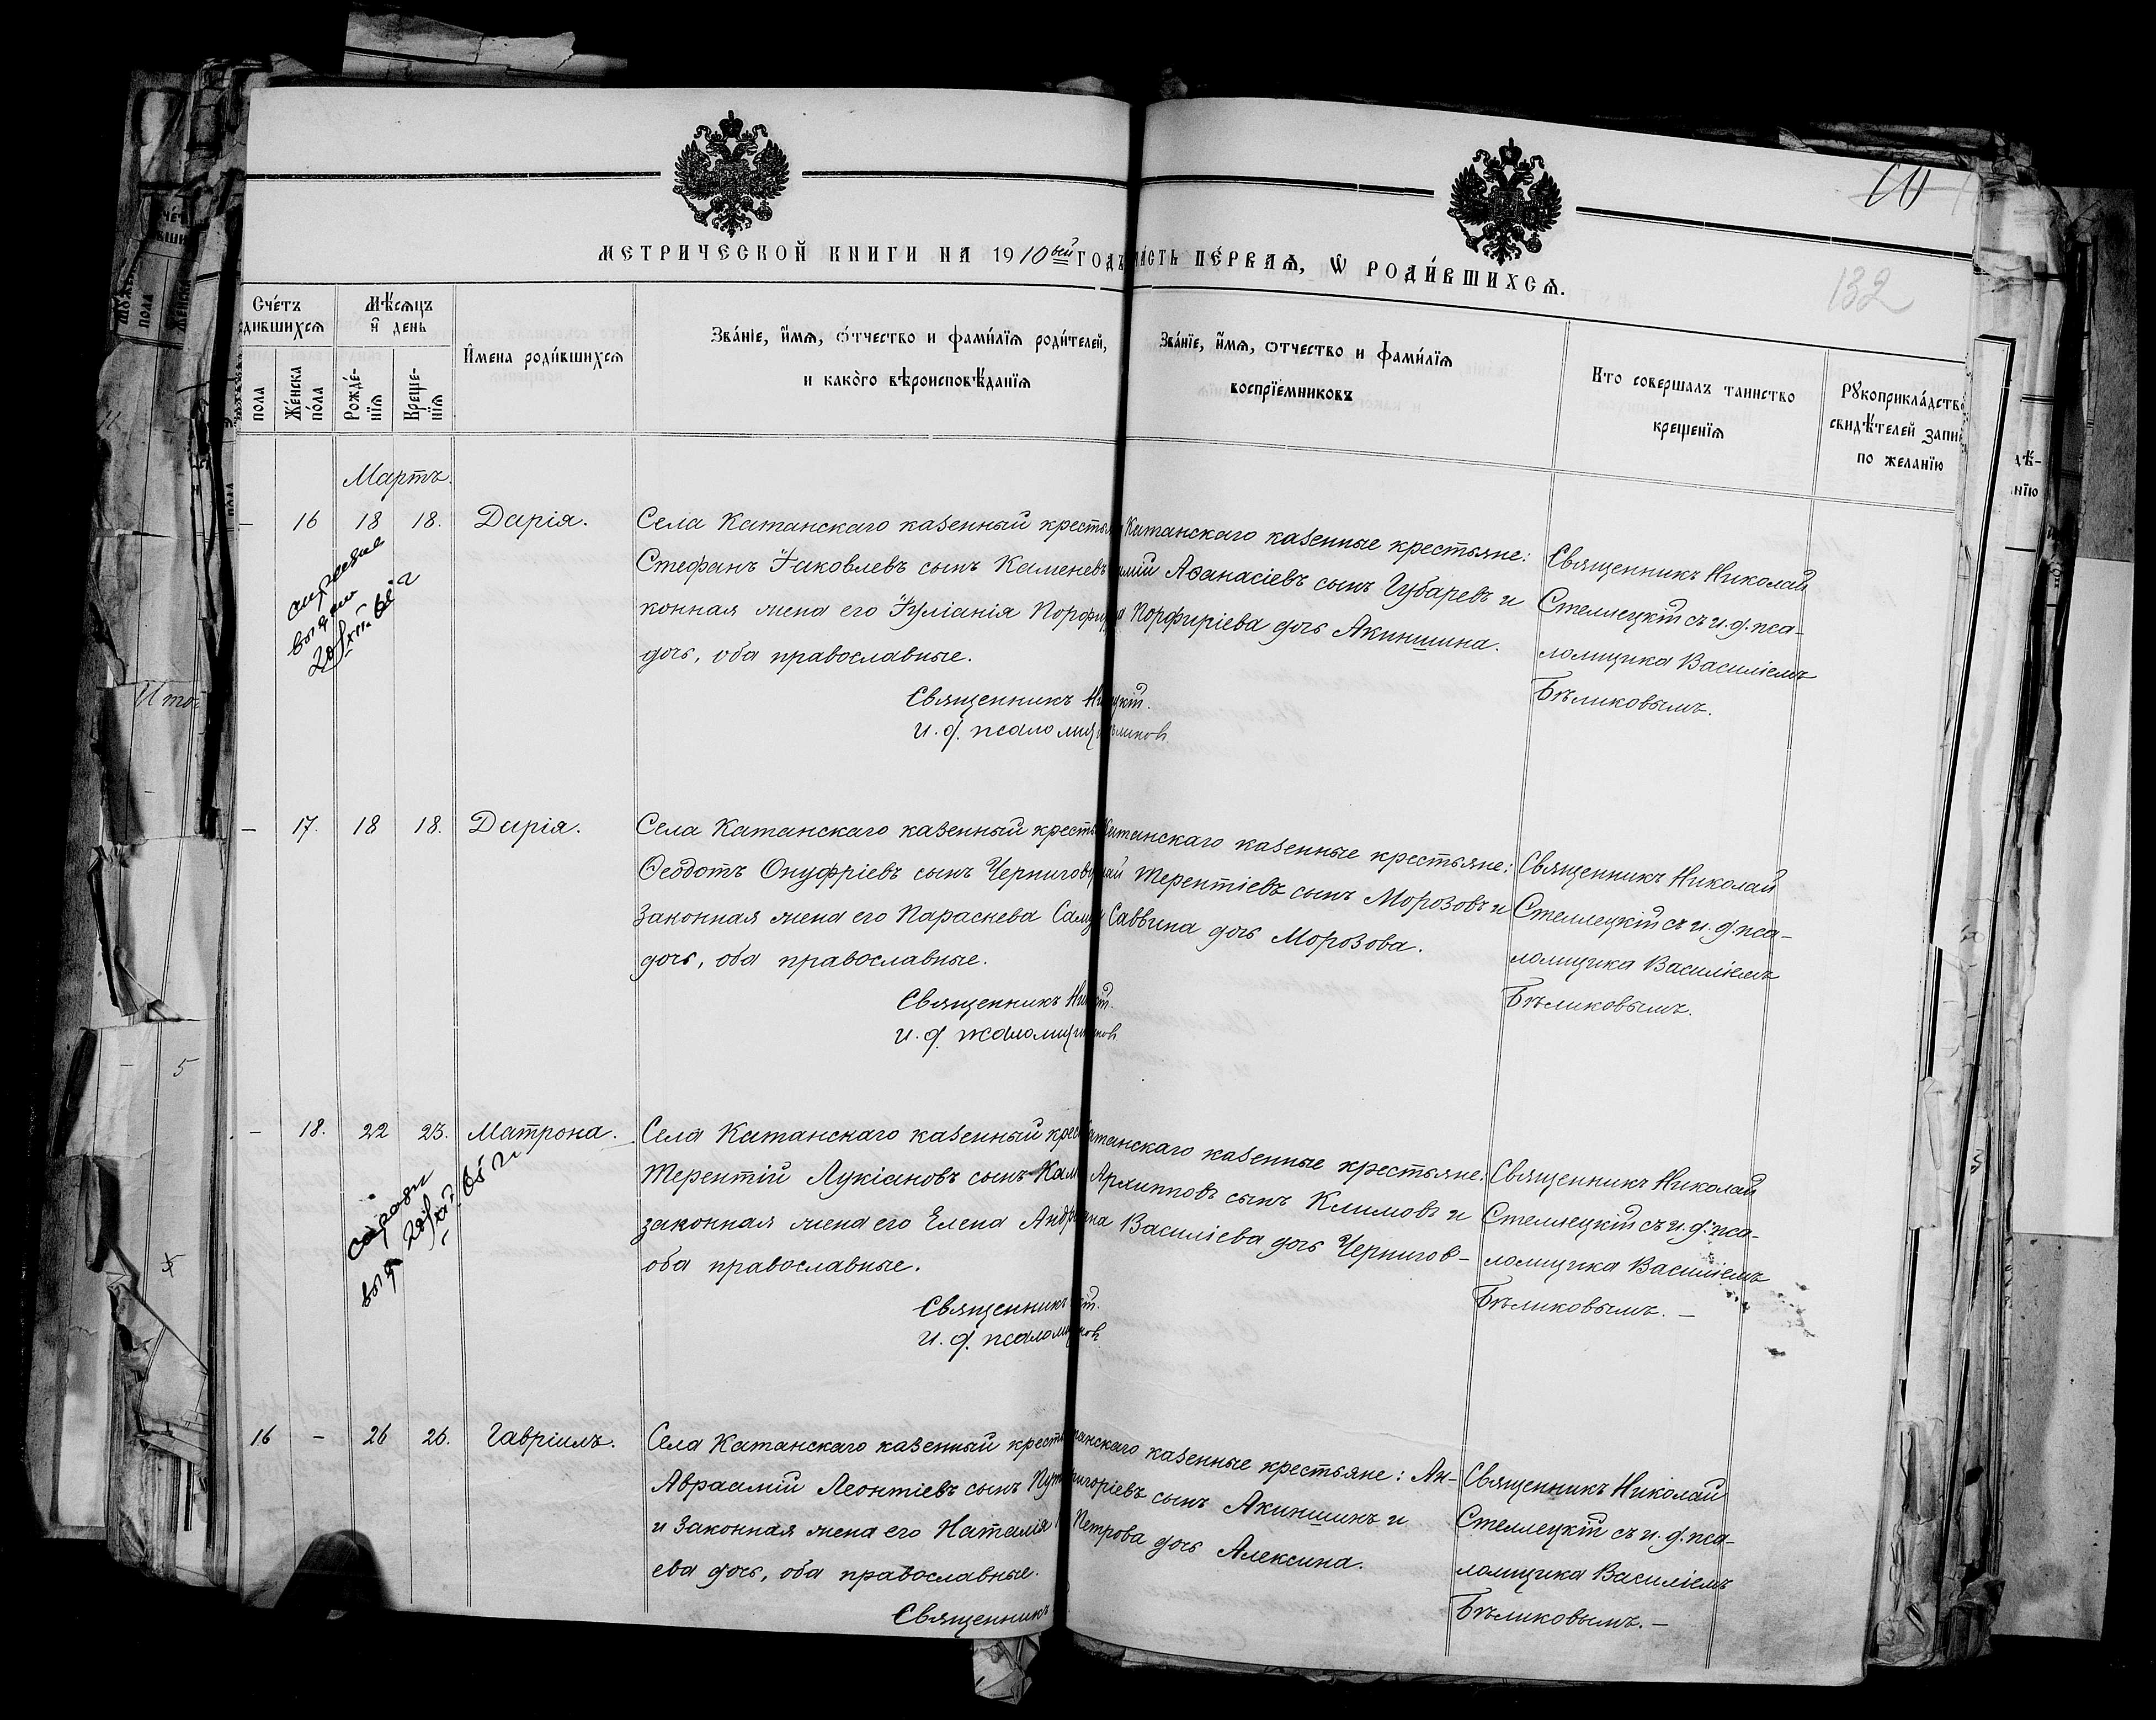 10
132
МЕТРИЧЕСКОЙ КНИГИ НА 1910ый ГОДЪ ЧАСТЬ ПЕРВАЯ, Ѡ РОДИВШИХСЯ.
Счетъ родившихся
пола
Женска пола
Мѣсяцъ и день
Рожде-нія
Креще-нія
Имена родившихся
Званіе, имя, отчество и фамилія родителей,
и какого вѣроисповѣданія
Званіе, имя, отчество и фамилія
воспріемниковъ
Кто совершалъ таинство
крещенія
Рукоприкладство
свидѣтелей записи
по желанію
Мартъ.
— 16 18 18. Дарія.
Села Катанскаго казенный
Стефанъ Іаковлевъ сынъ Каменевъ
конная жена его Іуліанія
дочь, оба православные.
Священникъ
и. д.
Катанскаго казенные крестьяне:
Аѳанасіевъ сынъ Губаревъ и
Порфиріева дочь Акиншина.
Священникъ Николай
Стеллецкій съ и. д. пса-
ломщика Василіемъ
Бѣликовымъ.
— 17. 18 18. Дарія.
Села Катанскаго казенный
Ѳеодотъ Онуфріевъ сынъ
Законная жена его Параскева
дочь, оба православные.
Священникъ
и. д.
казенные крестьяне:
Терентіевъ сынъ Морозовъ и
Саввина дочь Морозова.
Священникъ Николай
Стеллецкій съ и. д. пса-
ломщика Василіемъ
Бѣликовымъ.
— 18. 22 23. Матрона.
Села Катанскаго казенный
Терентій Лукіановъ сынъ
законная жена его Елена
оба православные.
Священникъ
и. д.
казенные крестьяне:
Архипповъ сынъ Климовъ и
Василіева дочь Чернигов-
Священникъ Николай
Стеллецкій съ и. д. пса-
ломщика Василіемъ
Бѣликовымъ. —
16 — 26 26. Гавріилъ.
Села Катанскаго казенный
Авраамій Леонтіевъ сынъ
и Законная жена его Наталія
ева дочь, оба православные.
Священникъ
казенные крестьяне: Ан-
сынъ Акиншинъ и
Петрова дочь Алексина.
Священникъ Николай
Стеллецкій съ и. д. пса-
ломщика Василіемъ
Бѣликовымъ. —